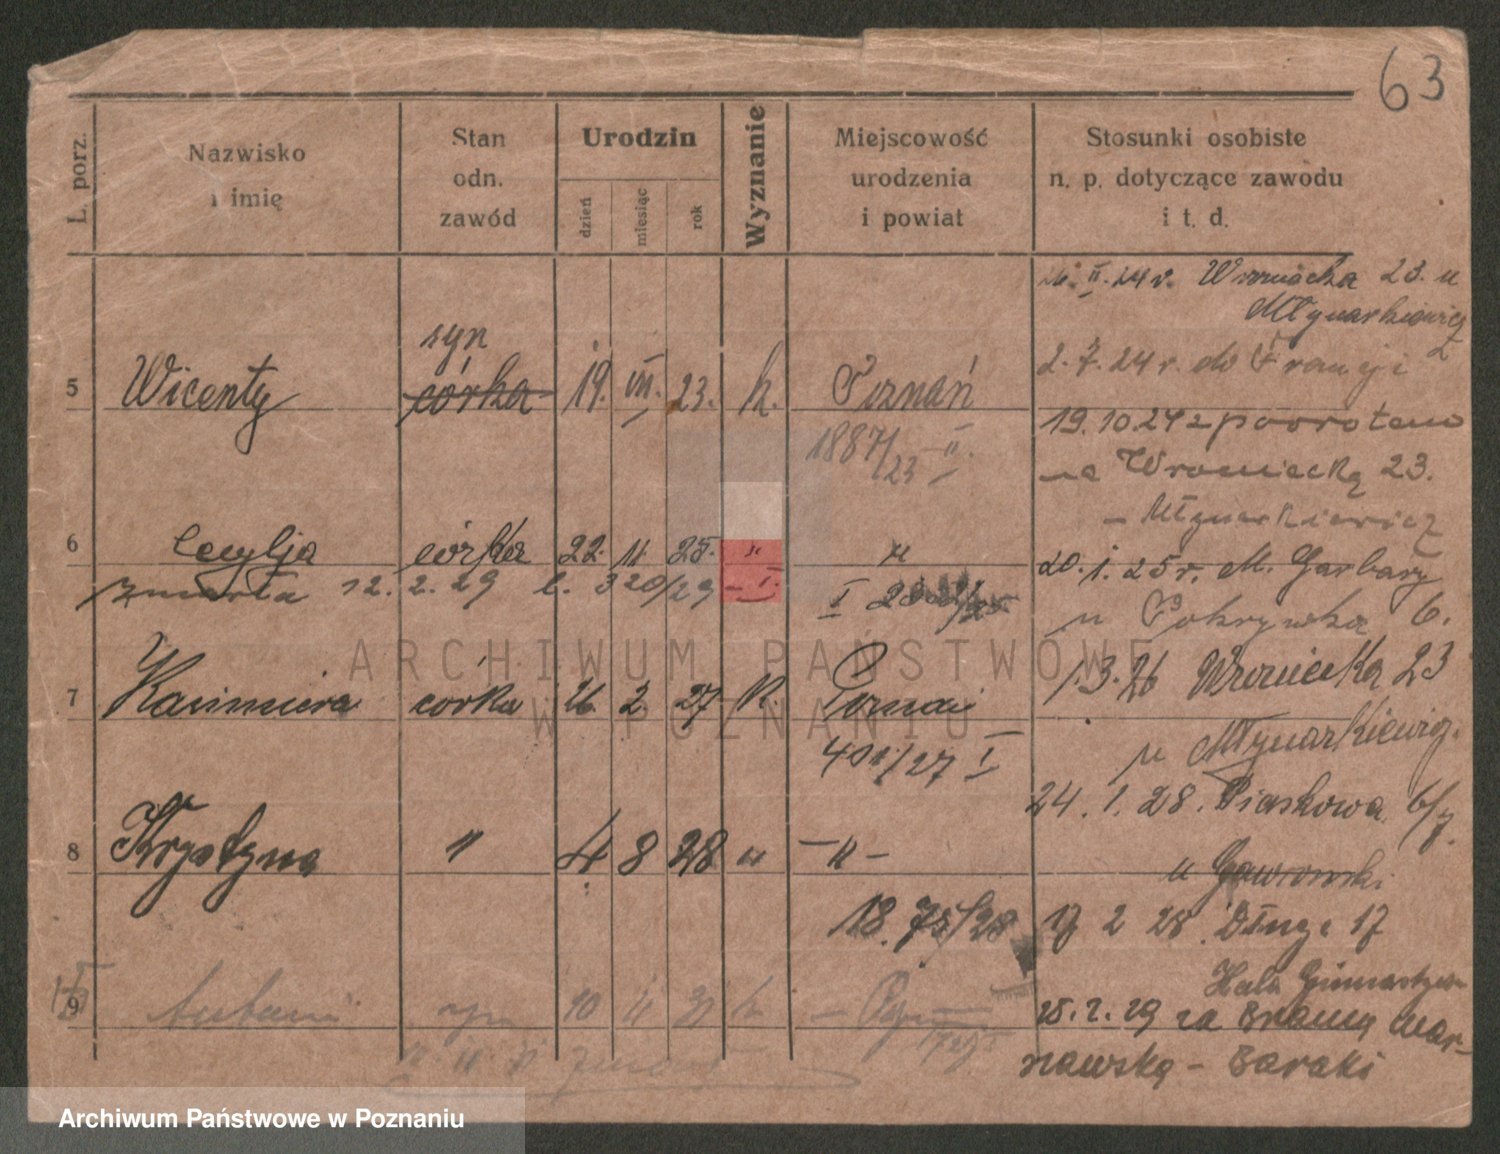 63
L. porz.
Nazwisko
i imię
Stan
odn.
zawód
Urodzin
dzień
miesiąc
rok
Wyznanie
Miejscowość
urodzenia
i powiat
Stosunki osobiste
n. p. dotyczące zawodu
i t. d.
II. 24 r. Wroniecka 23. u
Młynarkiewicz
2. 7. 24 r. do Francji
syn
5 Wicenty córka 19. VII. 23. k. Poznań
1887/23 II.
19.10.24 z powrotem
na Wroniecką 23.
- Młynarkiewicz
6 Cecylja córka 22. 11. 25. " "
zmarła 12. 2. 29 l. 320/29 - I.
I
20. 1. 25 r. M. Garbary
u Pokrywka 6.
7 Kazimiera córka 26. 2 27 K. Poznań
401/27 I
1.3.26 Wroniecka 23
u Młynarkiewicz.
24. 1. 28. Piaskowa 6/7.
u Gawroński
8 Krystyna " 4 8 28 " - " -
18. 75/28
17 2 28. Długa 17
Hala Gimnastyczn
9 syn 10 k
25. 2. 29 za Bramą War-
szawską - Baraki
ARCHIWUM PAŃSTWOWE
W POZNANIU
Archiwum Państwowe w Poznaniu